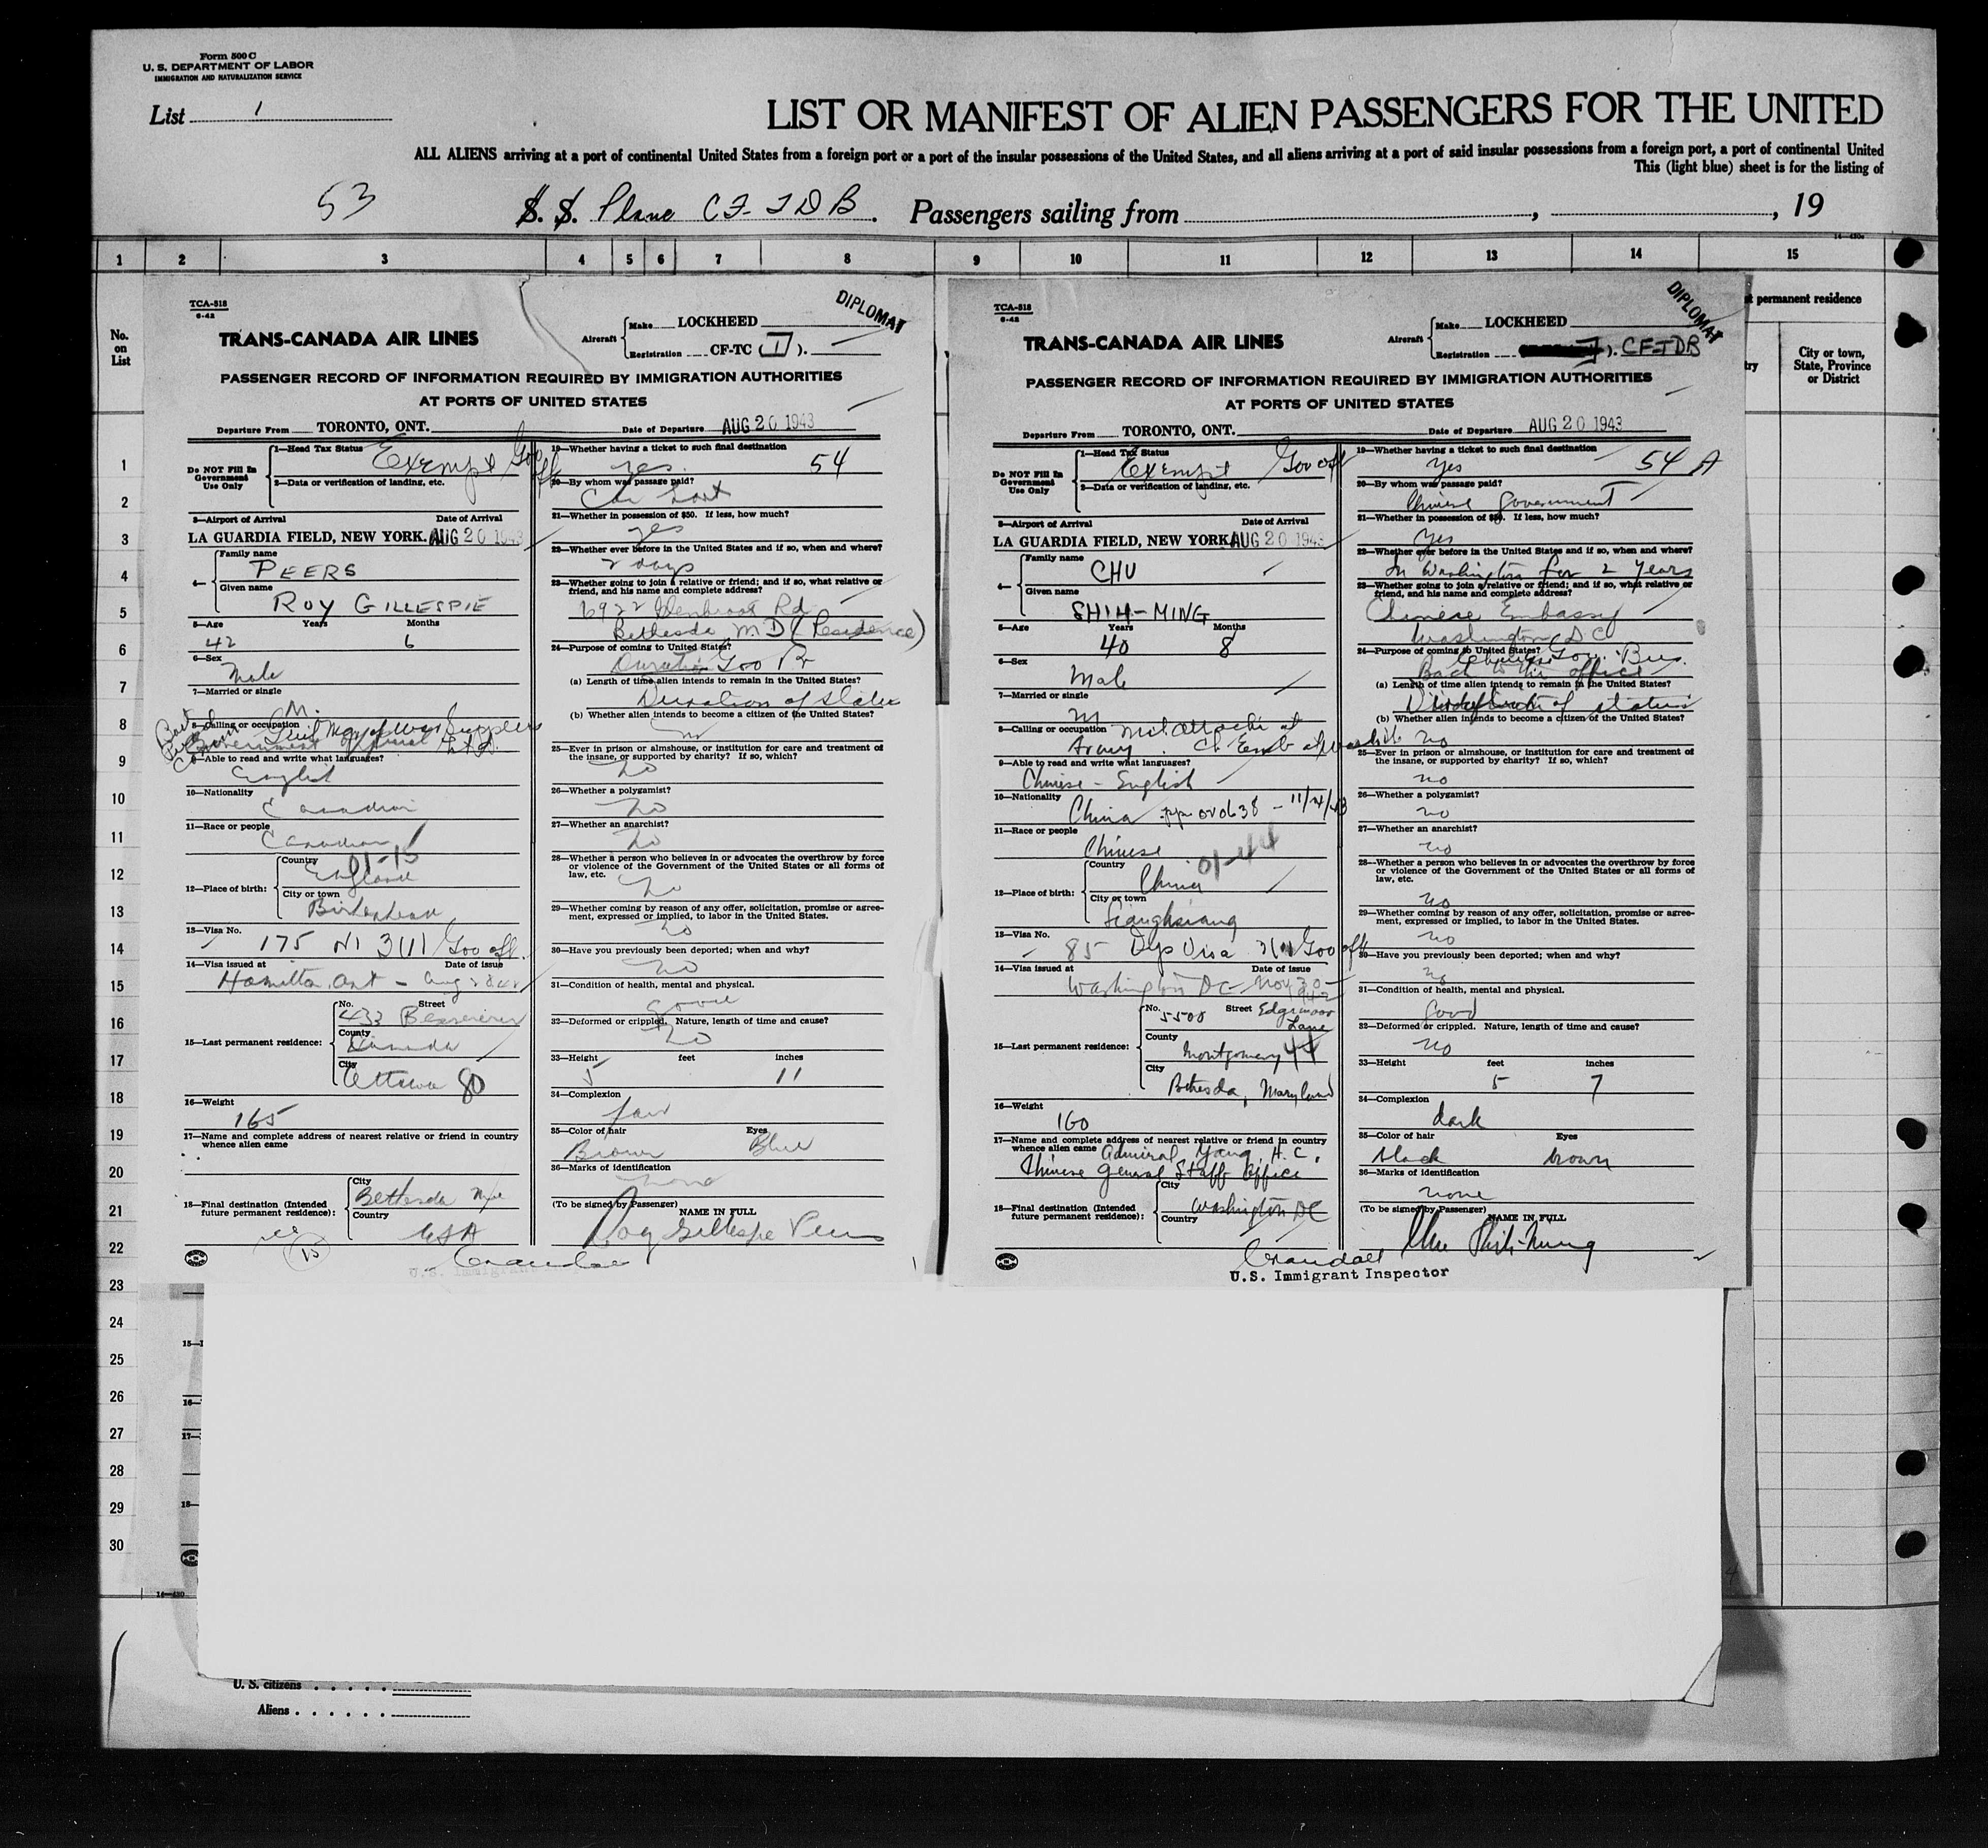 Form 500 C
U. S. DEPARTMENT OF LABOR
IMMIGRATION AND NATURALIZATION SERVICE
List 1
LIST OR MANIFEST OF ALIEN PASSENGERS FOR THE UNITED
ALL ALIENS arriving at a port of continental United States from a foreign port or a port of the insular possessions of the United States, and all aliens arriving at a port of said insular possessions from a foreign port, a port of continental United
This (light blue) sheet is for the listing of
53
S. S. Plane CF-TDB. Passengers sailing from , , 19
1 2 3 4 5 6 7 8 9 10 11 12 13 14 15
No. on List
permanent residence
City or town, State, Province or District
1
2
3
4
5
6
7
8
9
10
11
12
13
14
15
16
17
18
19
20
21
22
23
24
25
26
27
28
29
30
TCA-518
6-42
DIPLOMAT
TRANS-CANADA AIR LINES
Aircraft Make LOCKHEED
Registration CF-TC (I).
PASSENGER RECORD OF INFORMATION REQUIRED BY IMMIGRATION AUTHORITIES
AT PORTS OF UNITED STATES
Departure From TORONTO, ONT. Date of Departure AUG 20 1943
Do NOT Fill In Government Use Only
1—Head Tax Status Exempt Gov off
2—Data or verification of landing, etc.
3—Airport of Arrival Date of Arrival
LA GUARDIA FIELD, NEW YORK. AUG 20 1943
4— Family name
PEERS
Given name
ROY GILLESPIE
5—Age Years Months
42 6
6—Sex
Male
7—Married or single
M.
8—Calling or occupation
Government
9—Able to read and write what languages?
English
10—Nationality
Canadian
11—Race or people
Canadian
01-15
12—Place of birth: Country
England
City or town
Birkenhead
13—Visa No.
175 3(1) Gov off.
14—Visa issued at Date of issue
Hamilton. Ont - Aug
15—Last permanent residence: No. Street
433 Besserer
County
Canada
City
Ottawa 80
16—Weight
165
17—Name and complete address of nearest relative or friend in country whence alien came
18—Final destination (Intended future permanent residence): City
Bethesda
Country
USA
yes
15
19—Whether having a ticket to such final destination
yes. 54
20—By whom was passage paid?
21—Whether in possession of $50. If less, how much?
yes
22—Whether ever before in the United States and if so, when and where?
2 days
23—Whether going to join a relative or friend; and if so, what relative or friend, and his name and complete address?
6922 Glenbrook Rd
Bethesda M.D (Residence)
24—Purpose of coming to United States?
(a) Length of time alien intends to remain in the United States?
Duration of status
(b) Whether alien intends to become a citizen of the United States?
no
25—Ever in prison or almshouse, or institution for care and treatment of the insane, or supported by charity? If so, which?
no
26—Whether a polygamist?
no
27—Whether an anarchist?
no
28—Whether a person who believes in or advocates the overthrow by force or violence of the Government of the United States or all forms of law, etc.
no
29—Whether coming by reason of any offer, solicitation, promise or agreement, expressed or implied, to labor in the United States.
no
30—Have you previously been deported; when and why?
no
31—Condition of health, mental and physical.
Good
32—Deformed or crippled. Nature, length of time and cause?
no
33—Height feet inches
5 11
34—Complexion
fair
35—Color of hair Eyes
Brown Blue
36—Marks of identification
none
(To be signed by Passenger) NAME IN FULL
Roy Gillespie Peers
Crandall
U.S. Immigrant
TCA-518
6-42
DIPLOMAT
TRANS-CANADA AIR LINES
Aircraft Make LOCKHEED
Registration ). CF-TDB
PASSENGER RECORD OF INFORMATION REQUIRED BY IMMIGRATION AUTHORITIES
AT PORTS OF UNITED STATES
Departure From TORONTO, ONT. Date of Departure AUG 20 1943
Do NOT Fill In Government Use Only
1—Head Tax Status
Exempt Gov off
2—Data or verification of landing, etc.
3—Airport of Arrival Date of Arrival
LA GUARDIA FIELD, NEW YORK AUG 20 1943
4— Family name
CHU
Given name
SHIH-MING
5—Age Years Months
40 8
6—Sex
Male
7—Married or single
M
8—Calling or occupation Mil. Attache at
Army Ch. Emb at Wash
9—Able to read and write what languages?
Chinese - English
10—Nationality
China 11/21/43
11—Race or people
Chinese
01-44
12—Place of birth: Country
China
City or town
Sianghsiang
13—Visa No.
85 Dip Visa 3(1) Gov off
14—Visa issued at Date of issue
Washington DC Nov 30 - 1942
15—Last permanent residence: No. Street
5500 Edgemoor Lane
County
Montgomery 44
City
Bethesda, Maryland
16—Weight
160
17—Name and complete address of nearest relative or friend in country whence alien came Admiral Yang, H.C.,
Chinese General Staff Office
18—Final destination (Intended future permanent residence): City
Washington DC
Country
19—Whether having a ticket to such final destination
Yes 54 A
20—By whom was passage paid?
Chinese Government
21—Whether in possession of $50. If less, how much?
Yes
22—Whether ever before in the United States and if so, when and where?
In Washington for 2 years
23—Whether going to join a relative or friend; and if so, what relative or friend, and his name and complete address?
Chinese Embassy
Washington DC
24—Purpose of coming to United States? Chinese Gov. Bus.
Back to his office
(a) Length of time alien intends to remain in the United States?
Duration of status
(b) Whether alien intends to become a citizen of the United States?
no
25—Ever in prison or almshouse, or institution for care and treatment of the insane, or supported by charity? If so, which?
no
26—Whether a polygamist?
no
27—Whether an anarchist?
no
28—Whether a person who believes in or advocates the overthrow by force or violence of the Government of the United States or all forms of law, etc.
no
29—Whether coming by reason of any offer, solicitation, promise or agreement, expressed or implied, to labor in the United States.
no
30—Have you previously been deported; when and why?
no
31—Condition of health, mental and physical.
good
32—Deformed or crippled. Nature, length of time and cause?
no
33—Height feet inches
5 7
34—Complexion
dark
35—Color of hair Eyes
black brown
36—Marks of identification
none
(To be signed by Passenger) NAME IN FULL
Chu Shih-Ming
Crandall
U.S. Immigrant Inspector
U. S. citizens
Aliens